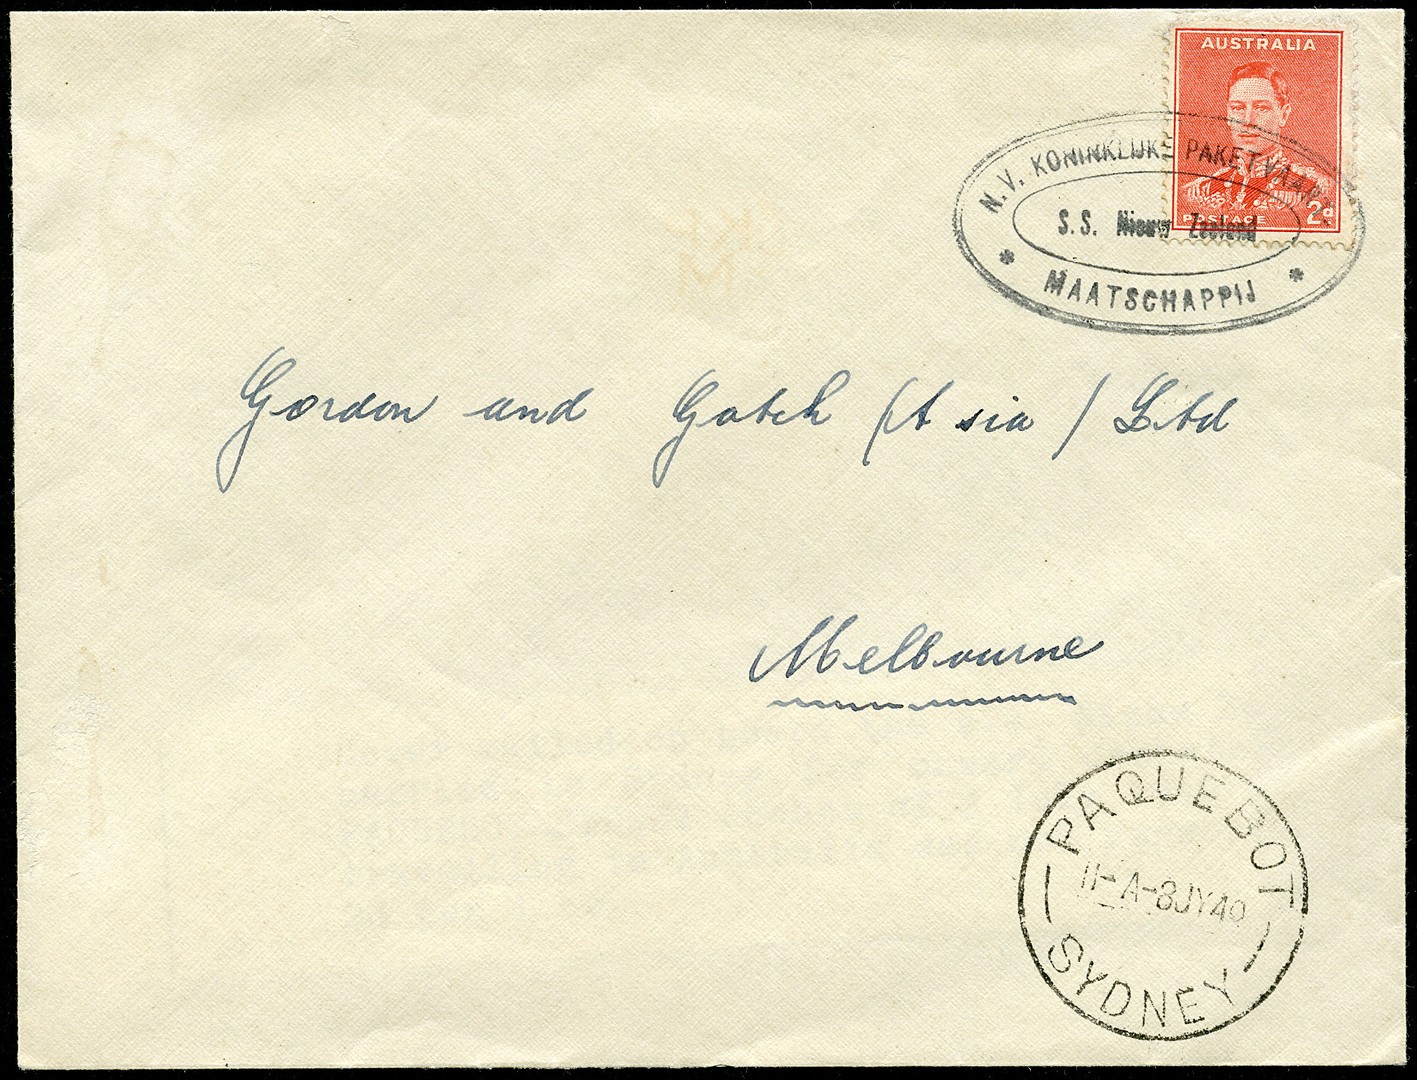 AUSTRALIA
POSTAGE 2d
N.V. KONINKLIJKE PAKETVAART
S.S. Nieuw Zeeland
* MAATSCHAPPIJ *
Gordon and Gotch (Asia) Ltd
Melbourne
PAQUEBOT
11-A-8JY40
SYDNEY